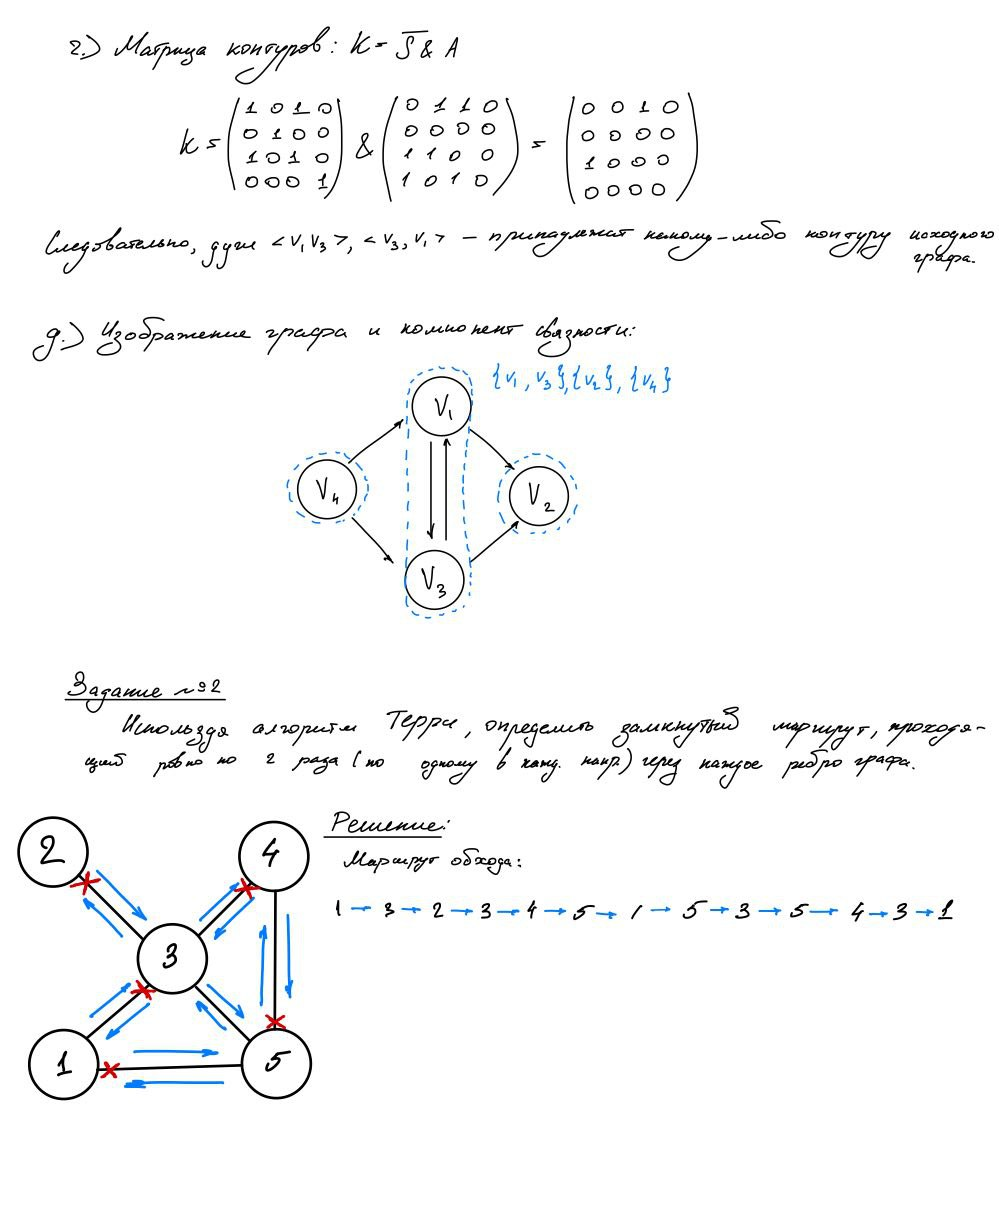 г.) Матрица контуров: K = S̅ & A
K = (1 0 1 0 & (0 1 1 0 = (0 0 1 0
0 1 0 0 0 0 0 0 0 0 0 0
1 0 1 0 1 1 0 0 1 0 0 0
0 0 0 1) 1 0 1 0) 0 0 0 0)
Следовательно, дуги <V₁V₃>, <V₃,V₁> – принадлежат какому-либо контуру исходного
графа.
д.) Изображение графа и компонент связности:
{V₁, V₃}, {V₂}, {V₄}
V₁
V₄
V₂
V₃
Задание №2
Используя алгоритм Терри, определить замкнутый маршрут, проходя-
щий ровно по 2 раза (по одному в кажд. напр.) через каждое ребро графа.
Решение:
Маршрут обхода:
1 → 3 → 2 → 3 → 4 → 5 → 1 → 5 → 3 → 5 → 4 → 3 → 1
2
4
3
1
5